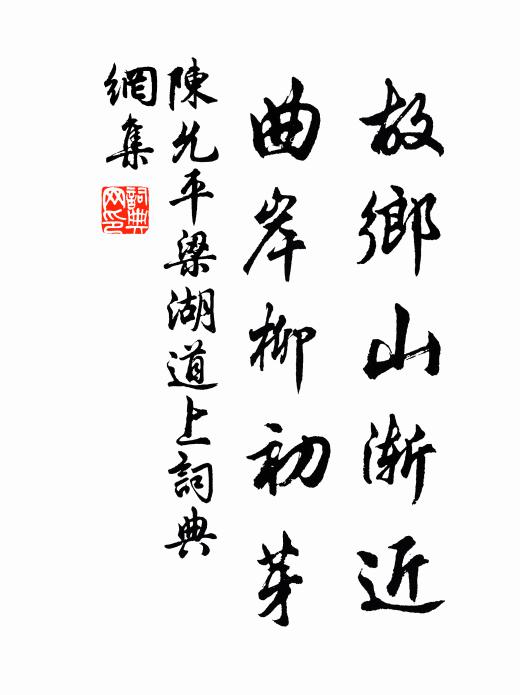 故鄉山渐近
曲岸柳初芽
陳允平梁湖道上詞典
網集
詞典
网印